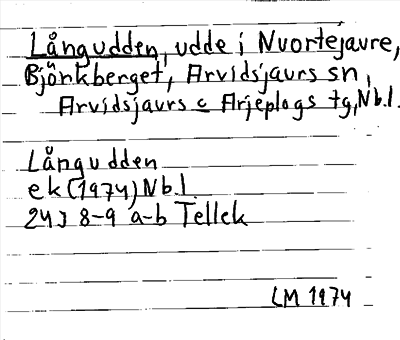 Långudden, udde i Nuortejaure,
Björkberget, Arvidsjaurs sn,
Arvidsjaurs o Arjeplogs tg, Nb.l.
Långudden
ek (1974) Nb.l
24J 8-9 a-b Tellek
LM 1974